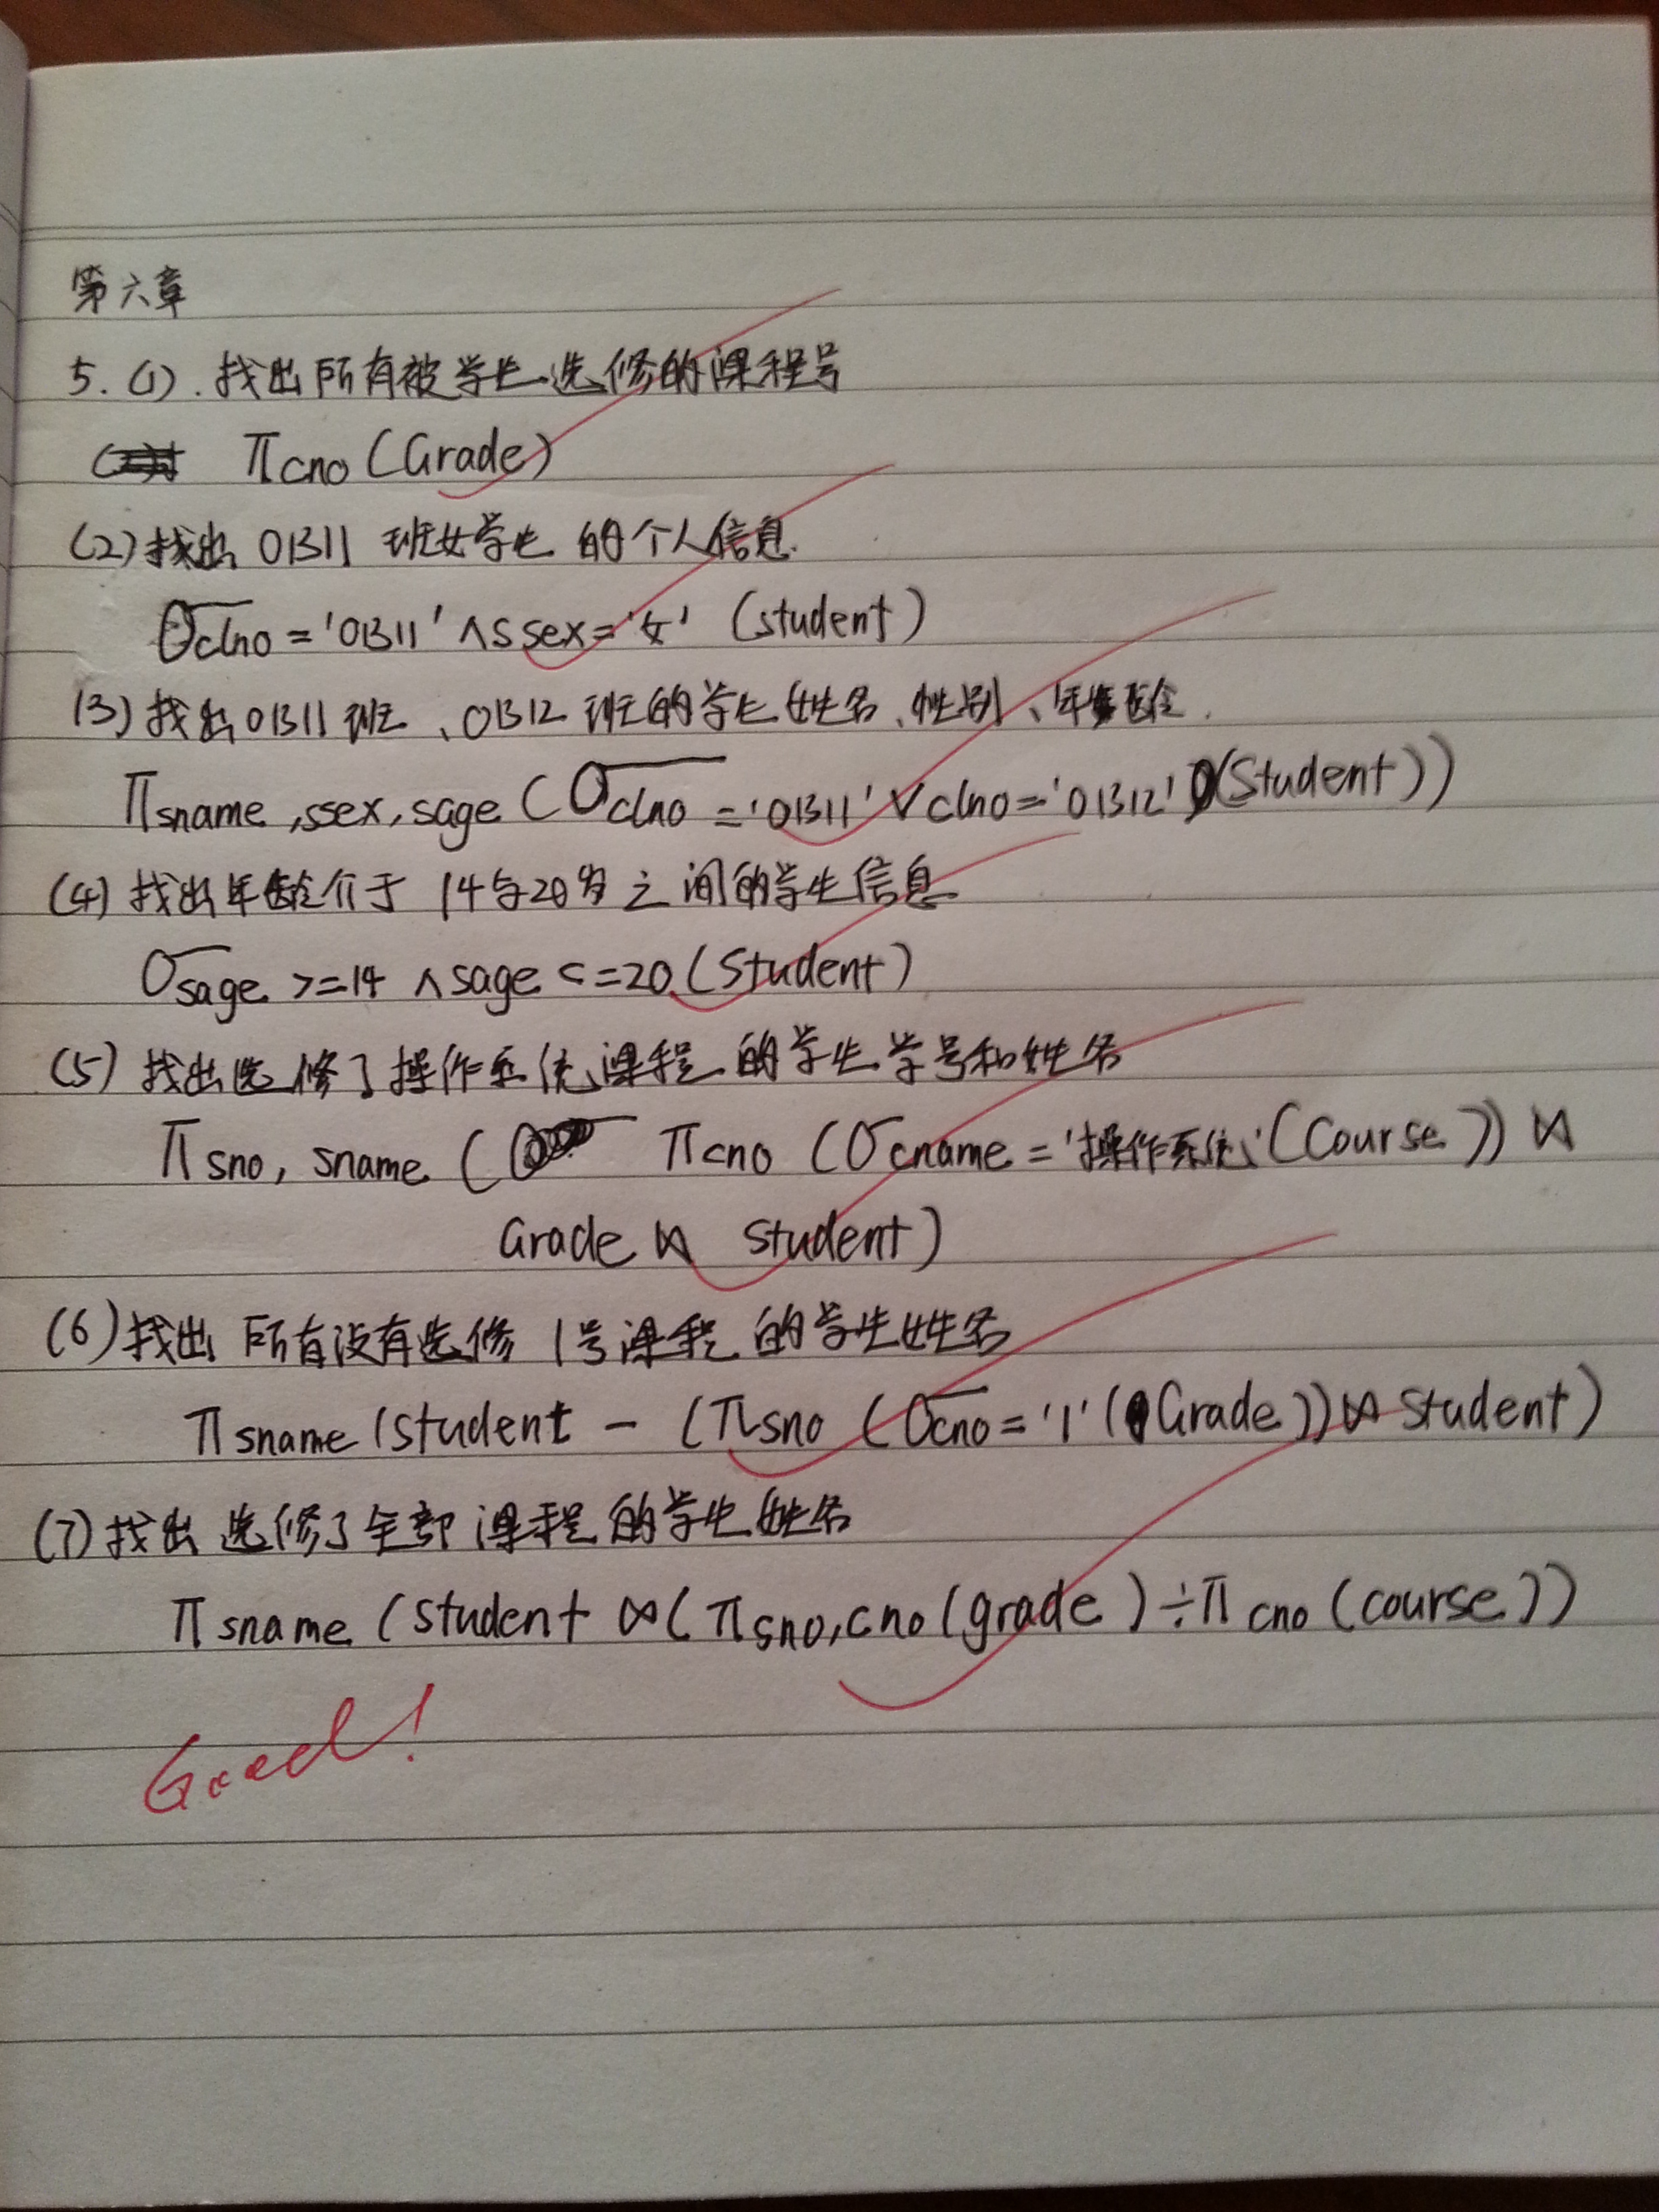 第六章
5. (1). 找出所有被学生选修的课程号
Πcno (Grade)
(2) 找出 01311 班女学生 的个人信息.
σclno = '01311' ∧ ssex = '女' (student)
(3) 找出01311 班、01312 班的学生姓名、性别、年龄.
Πsname, ssex, sage (σclno = '01311' ∨ clno = '01312' (Student))
(4) 找出年龄介于 14与20岁之间的学生信息
σsage >= 14 ∧ sage <= 20 (Student)
(5) 找出选修了操作系统课程的学生学号和姓名
Πsno, sname ( Πcno (σcname = '操作系统' (Course)) ⋈
Grade ⋈ Student)
(6) 找出 所有没有选修 1号课程 的学生姓名
Πsname (student - (Πsno (σcno = '1' (Grade)) ⋈ Student)
(7) 找出 选修了全部课程的学生姓名
Πsname (student ⋈ (Πsno,cno (grade) ÷ Πcno (course))
Good!